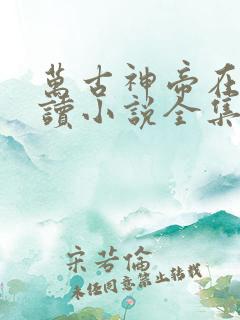 萬古神帝在
讀小說全集
宋若倫
未經同意禁止轉載